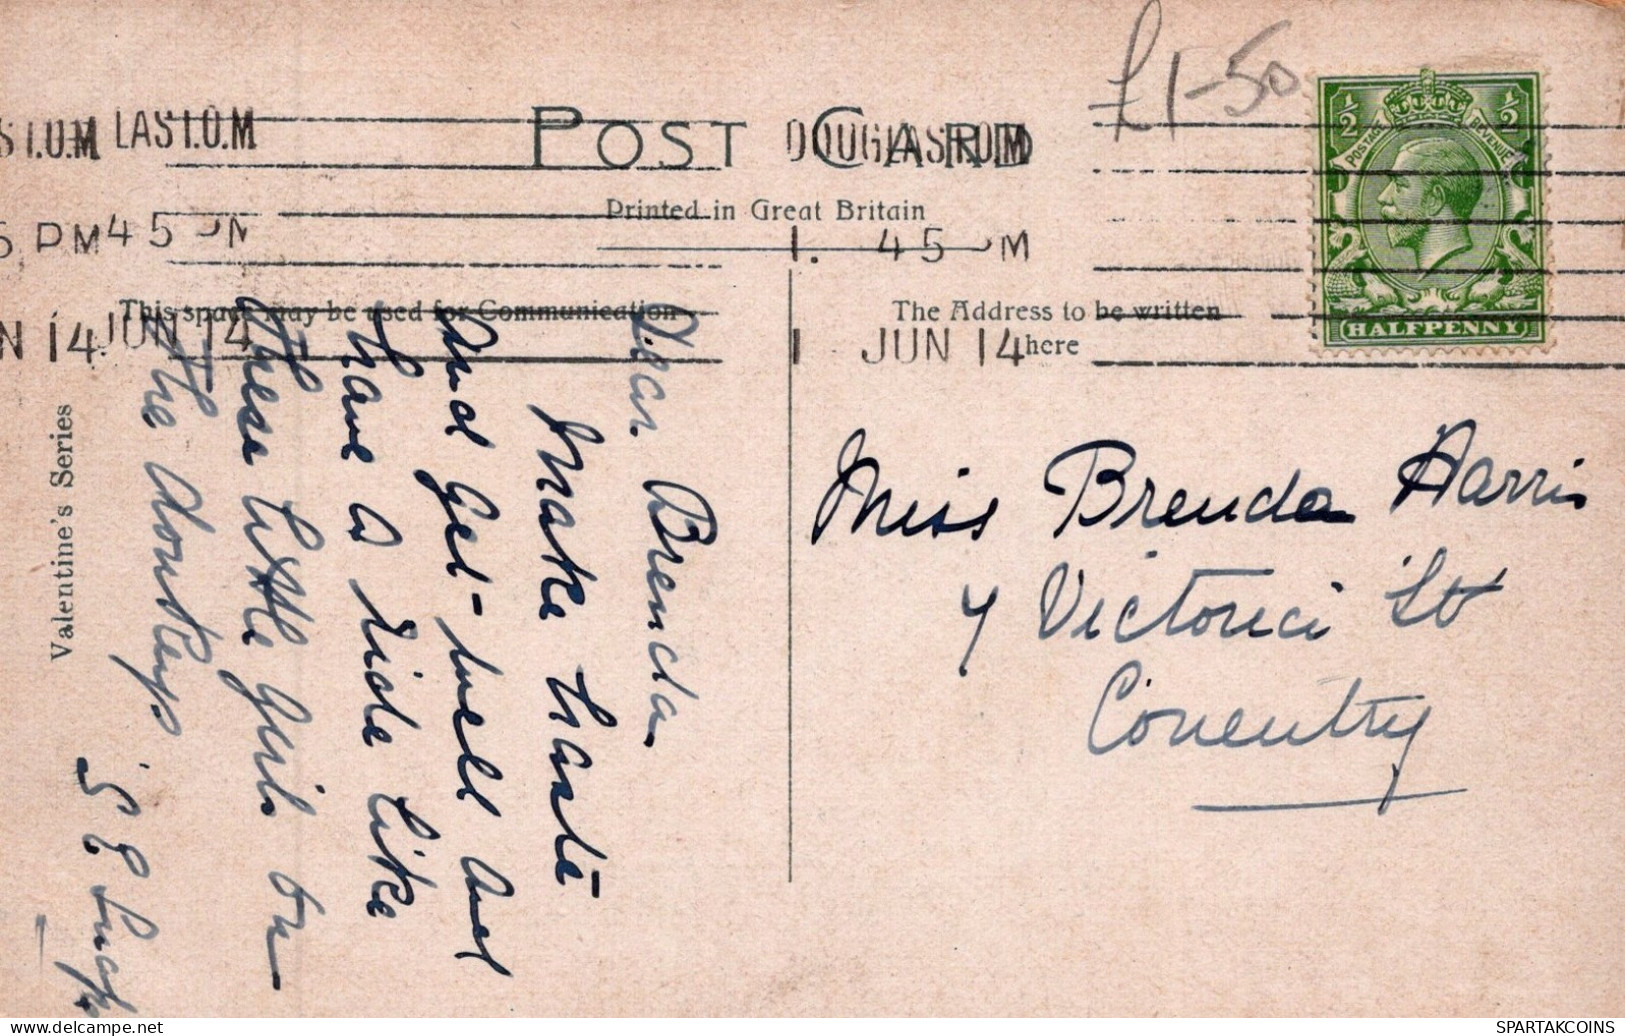 £1-50
POST CARD
Printed in Great Britain
DOUGLAS I.O.M
LAS I.O.M
S I.O.M
1. 45 PM
45 PM
5 PM
JUN 14
JUN 14
N 14
½ ½
POSTAGE REVENUE
HALFPENNY
This space may be used for Communication
The Address to be written
here
Valentine's Series
Dear Brenda
Make haste
and get well and
have a ride like
these little girls on
the donkeys
S E
Miss Brenda Harris
Victoria St
Coventry
SPARTAKCOINS
WWW.SPARTAKCOINS.COM